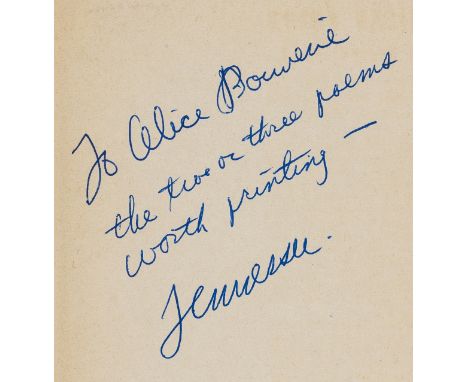 To Alice Bouverie
the two or three poems
worth printing —
Tennessee.